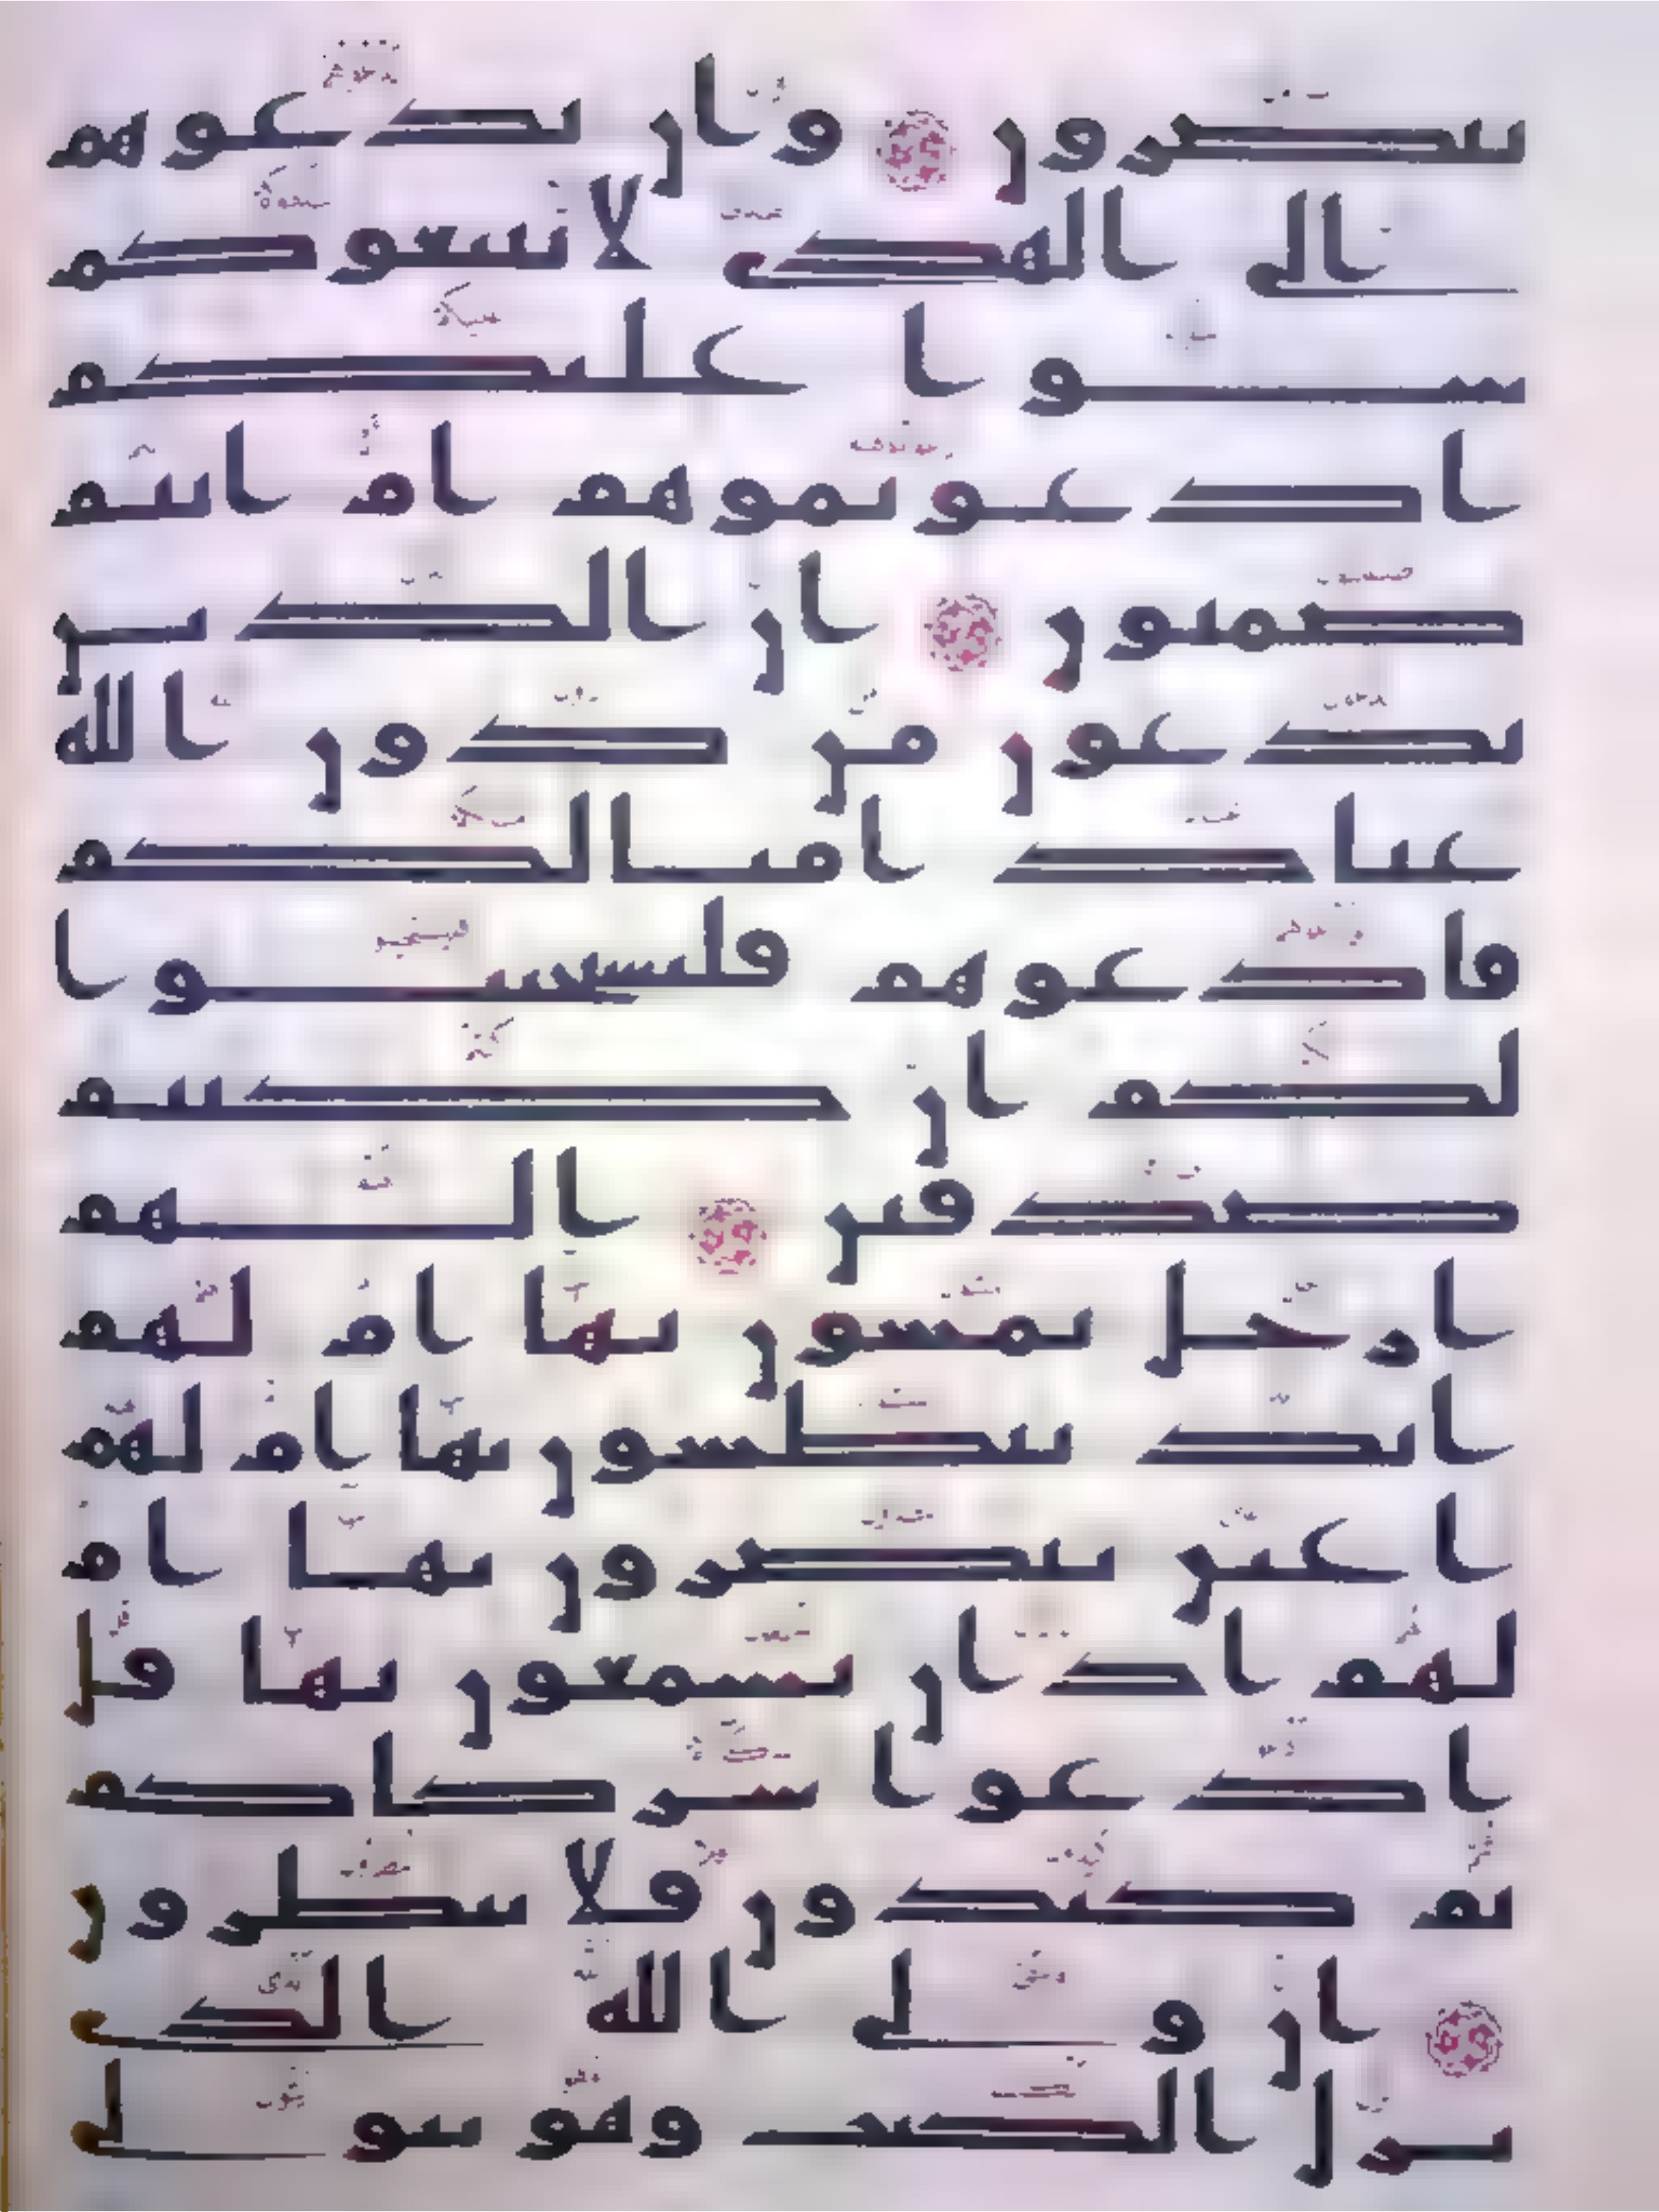 ينصرون وان تدعوهم
الى الهدى لا يتبعوكم
سوا عليكم
ادعوتموهم ام انتم
صمتون ان الذين
تدعون من دون الله
عباد امثالكم
فادعوهم فليستجيبوا
لكم ان كنتم
صدقين الهم
ارجل يمشون بها ام لهم
ايد يبطشون بها ام لهم
اعين يبصرون بها ام
لهم اذان يسمعون بها قل
ادعوا شركاكم
ثم كيدون فلا تنظرون
ان ولي الله الذي
نزل الكتب وهو يتولى